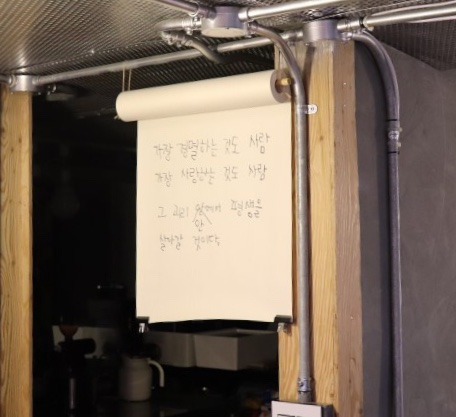 가장 경멸하는 것도 사람
가장 사랑하는 것도 사람
그 괴리 안에서 평생을
살아갈 것이다.